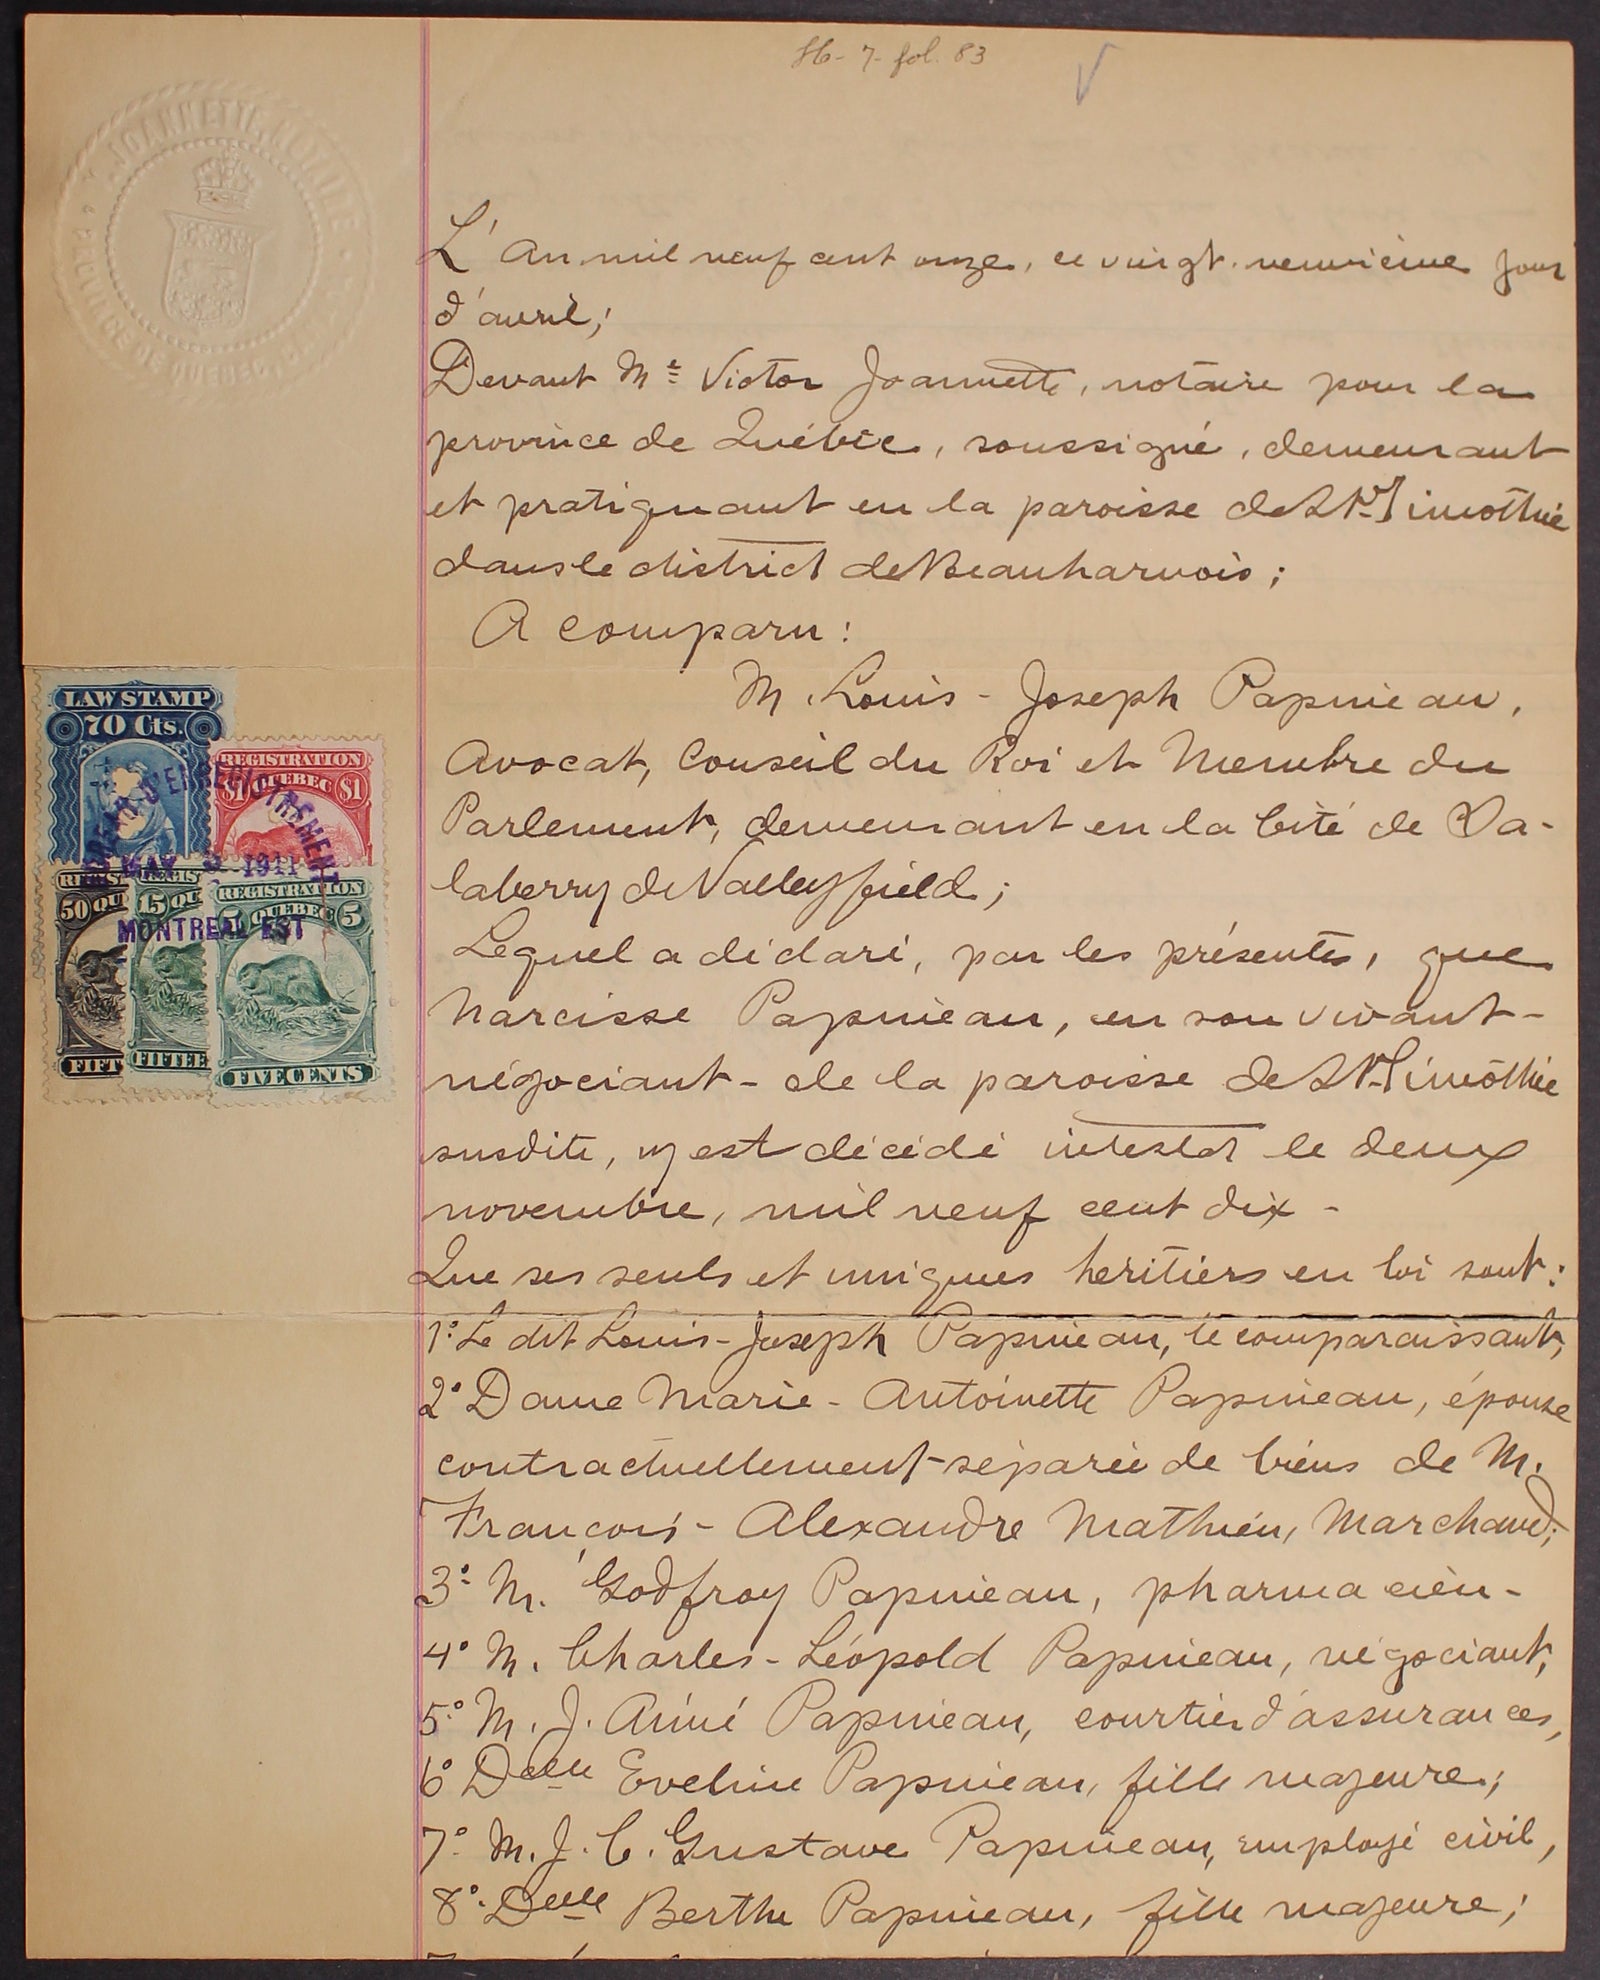 fol. 83
JOANNETTE, NOTAIRE
PROVINCE DE QUEBEC
L'An mil neuf cent onze, ce vingt-neuvième jour
d'avril;
Devant Mᵉ Victor Joannette, notaire pour la
province de Québec, soussigné, demeurant
et pratiquant en la paroisse de St-Timothée
dans le district de Beauharnois;
A comparu:
M. Louis-Joseph Papineau,
Avocat, Conseil du Roi et Membre du
Parlement, demeurant en la Cité de Sa-
laberry de Valleyfield;
Lequel a déclaré, par les présentes, que
Narcisse Papineau, en son vivant-
négociant- de la paroisse de St-Timothée
susdite, y est décédé intestat le deux
novembre, mil neuf cent dix -
Que ses seuls et uniques heritiers en loi sont:
1º Le dit Louis-Joseph Papineau, le comparaissant,
2º Dame Marie-Antoinette Papineau, épouse
contractuellement-séparée de biens de M.
François-Alexandre Mathieu, Marchand;
3º M. Godfroy Papineau, pharmacien-
4º M. Charles-Léopold Papineau, négociant,
5º M. J. Aimé Papineau, courtier d'assurances,
6º Delle Eveline Papineau, fille majeure;
7º M. J. C. Gustave Papineau, employé civil,
8º Delle Berthe Papineau, fille majeure;
LAW STAMP
70 Cts.
REGISTRATION
$1 QUEBEC $1
BUREAU D'ENREGISTREMENT
MAY 1911
MONTREAL EST
REGIST
50 QU
FIFT
REGIS
15 QU
FIFTEE
REGISTRATION
5 QUEBEC 5
FIVE CENTS